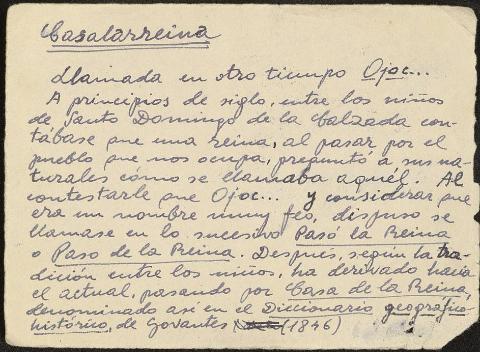 Casalarreina
Llamada en otro tiempo Ojoc...
A principios de siglo, entre los niños
de Santo Domingo de la Calzada con-
tábase que una reina, al pasar por el
pueblo que nos ocupa, preguntó a sus na-
turales cómo se llamaba aquél. Al
contestarle que Ojoc... y considerar que
era un nombre muy feo, dispuso se
llamase en lo sucesivo Pasó la Reina
o Paso de la Reina. Después, según la tra-
dición entre los niños, ha derivado hacia
el actual, pasando por Casa de la Reina,
denominado así en el Diccionario geográfico
histórico, de Govantes (1846)